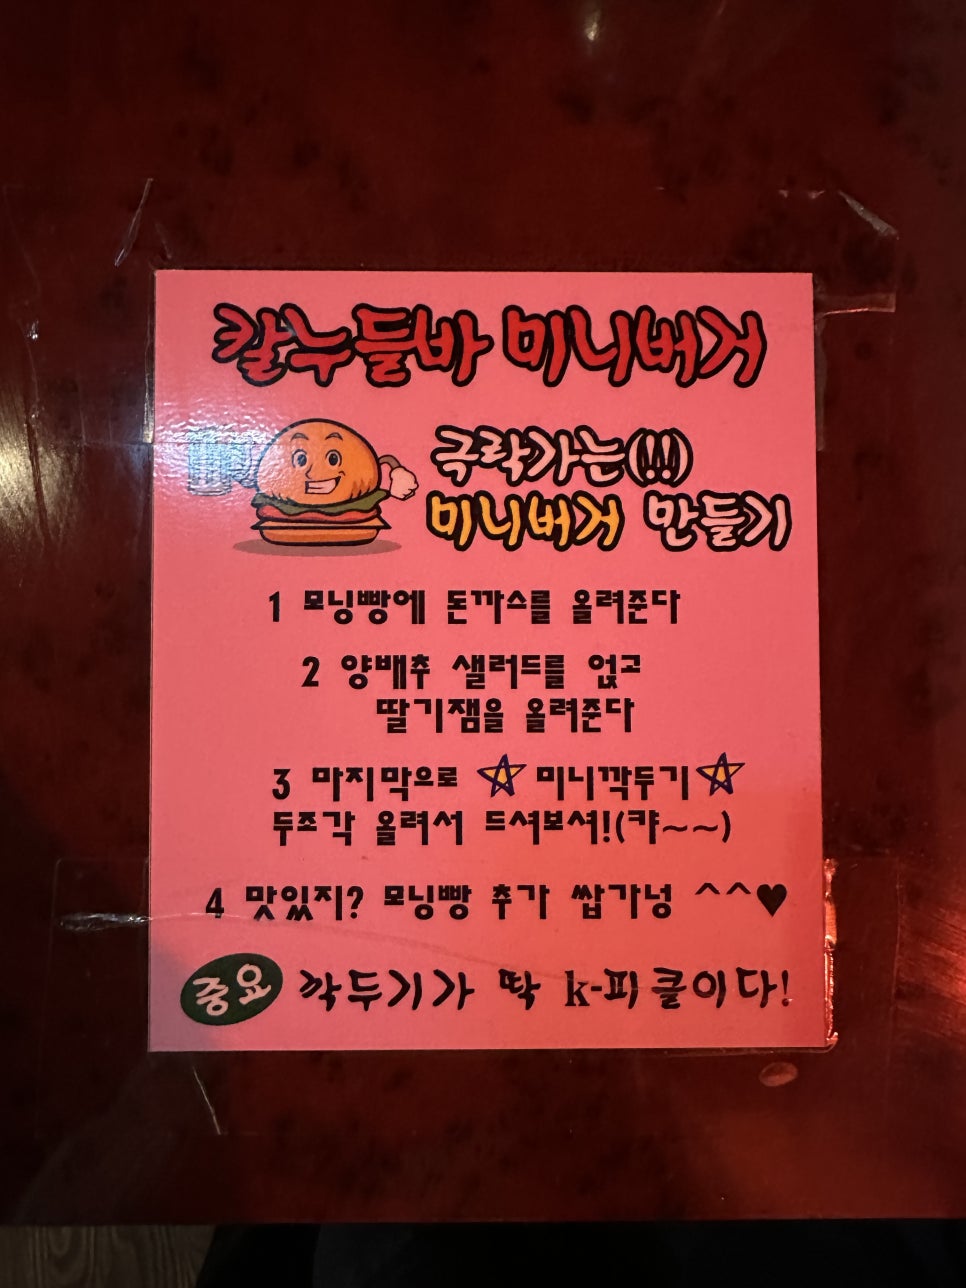 칼누들바 미니버거
극락가는(!!)
미니버거 만들기
1 모닝빵에 돈까스를 올려준다
2 양배추 샐러드를 얹고
딸기잼을 올려준다
3 마지막으로 미니깍두기
두조각 올려서 드셔보셔!(캬~~)
4 맛있지? 모닝빵 추가 쌉가넝 ^^♥
중요 깍두기가 딱 k-피클이다!